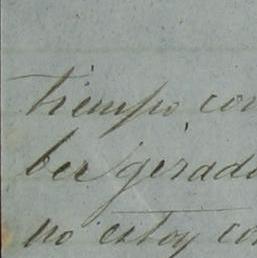 tiempo con
ber girado
no estoy con